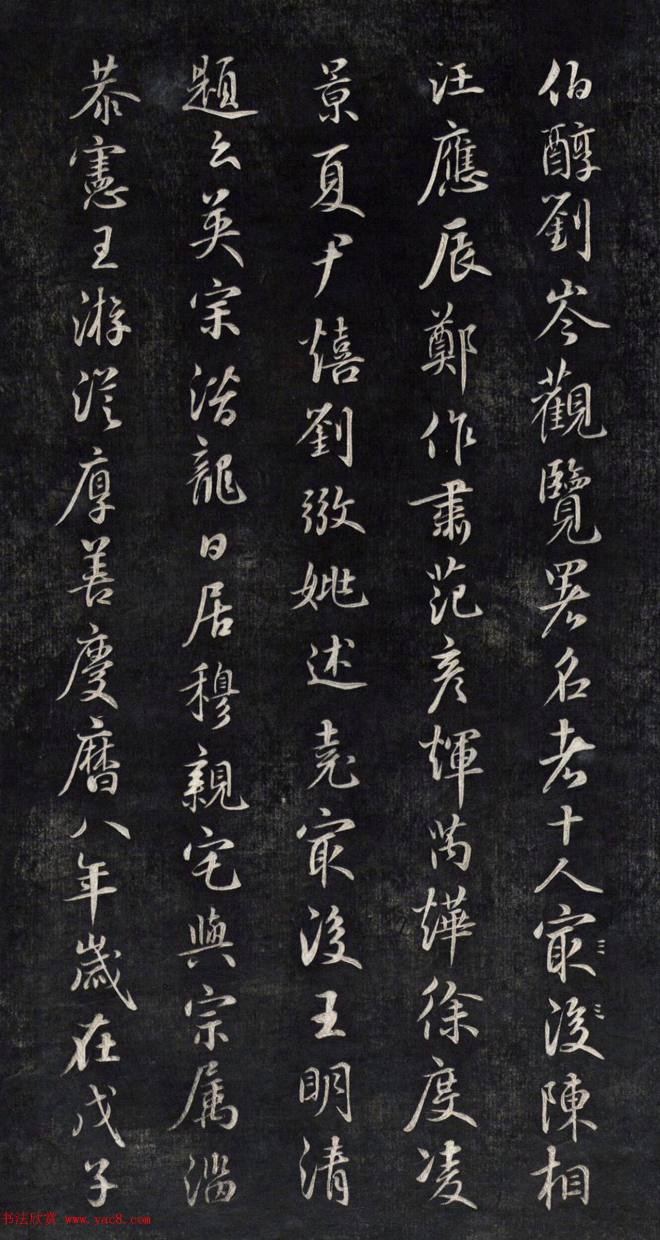 伯醇劉岑觀覽署名者十人冣後陳相
汪應辰鄭作肅范彥煇芮燁徐度凌
景夏尹熺劉姚述堯冣後王明清
題云英宗潛龍日居穆親宅與宗属淄
恭憲王游從厚善慶曆八年歲在戊子
书法欣赏 www.yac8.com